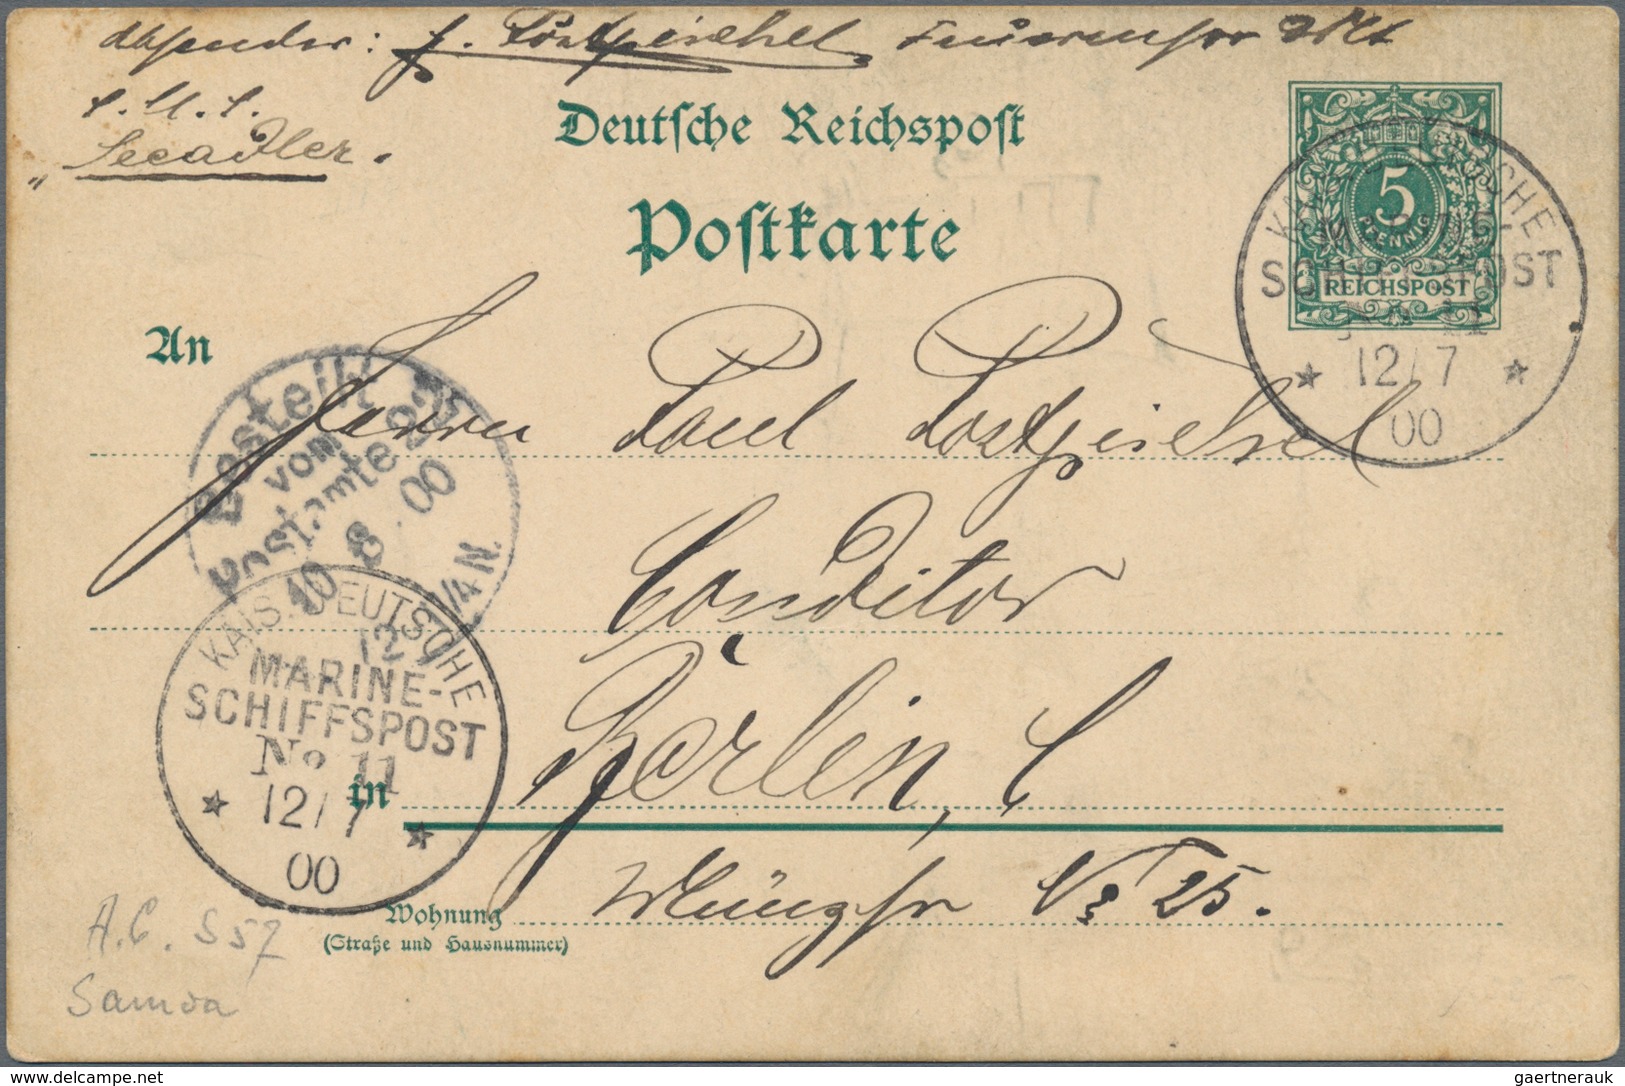 Absender: J. Postpischel
S.M.S.
„Seeadler.
Deutsche Reichspost
Postkarte
5
PFENNIG
REICHSPOST
KAIS. DEUTSCHE
MARINE-
SCHIFFSPOST
No 11
* 12/7 *
00
An Herrn Paul Postpischel
Conditor
in Berlin, C
Wohnung Münzstr No 25.
(Straße und Hausnummer)
Bestellt
vom
Postamte
10 8. 00
1/4 N.
KAIS. DEUTSCHE
MARINE-
SCHIFFSPOST
No 11
* 12/7 *
00
A.C. S 57
Samoa
Delcampe.net
gaertnerauk